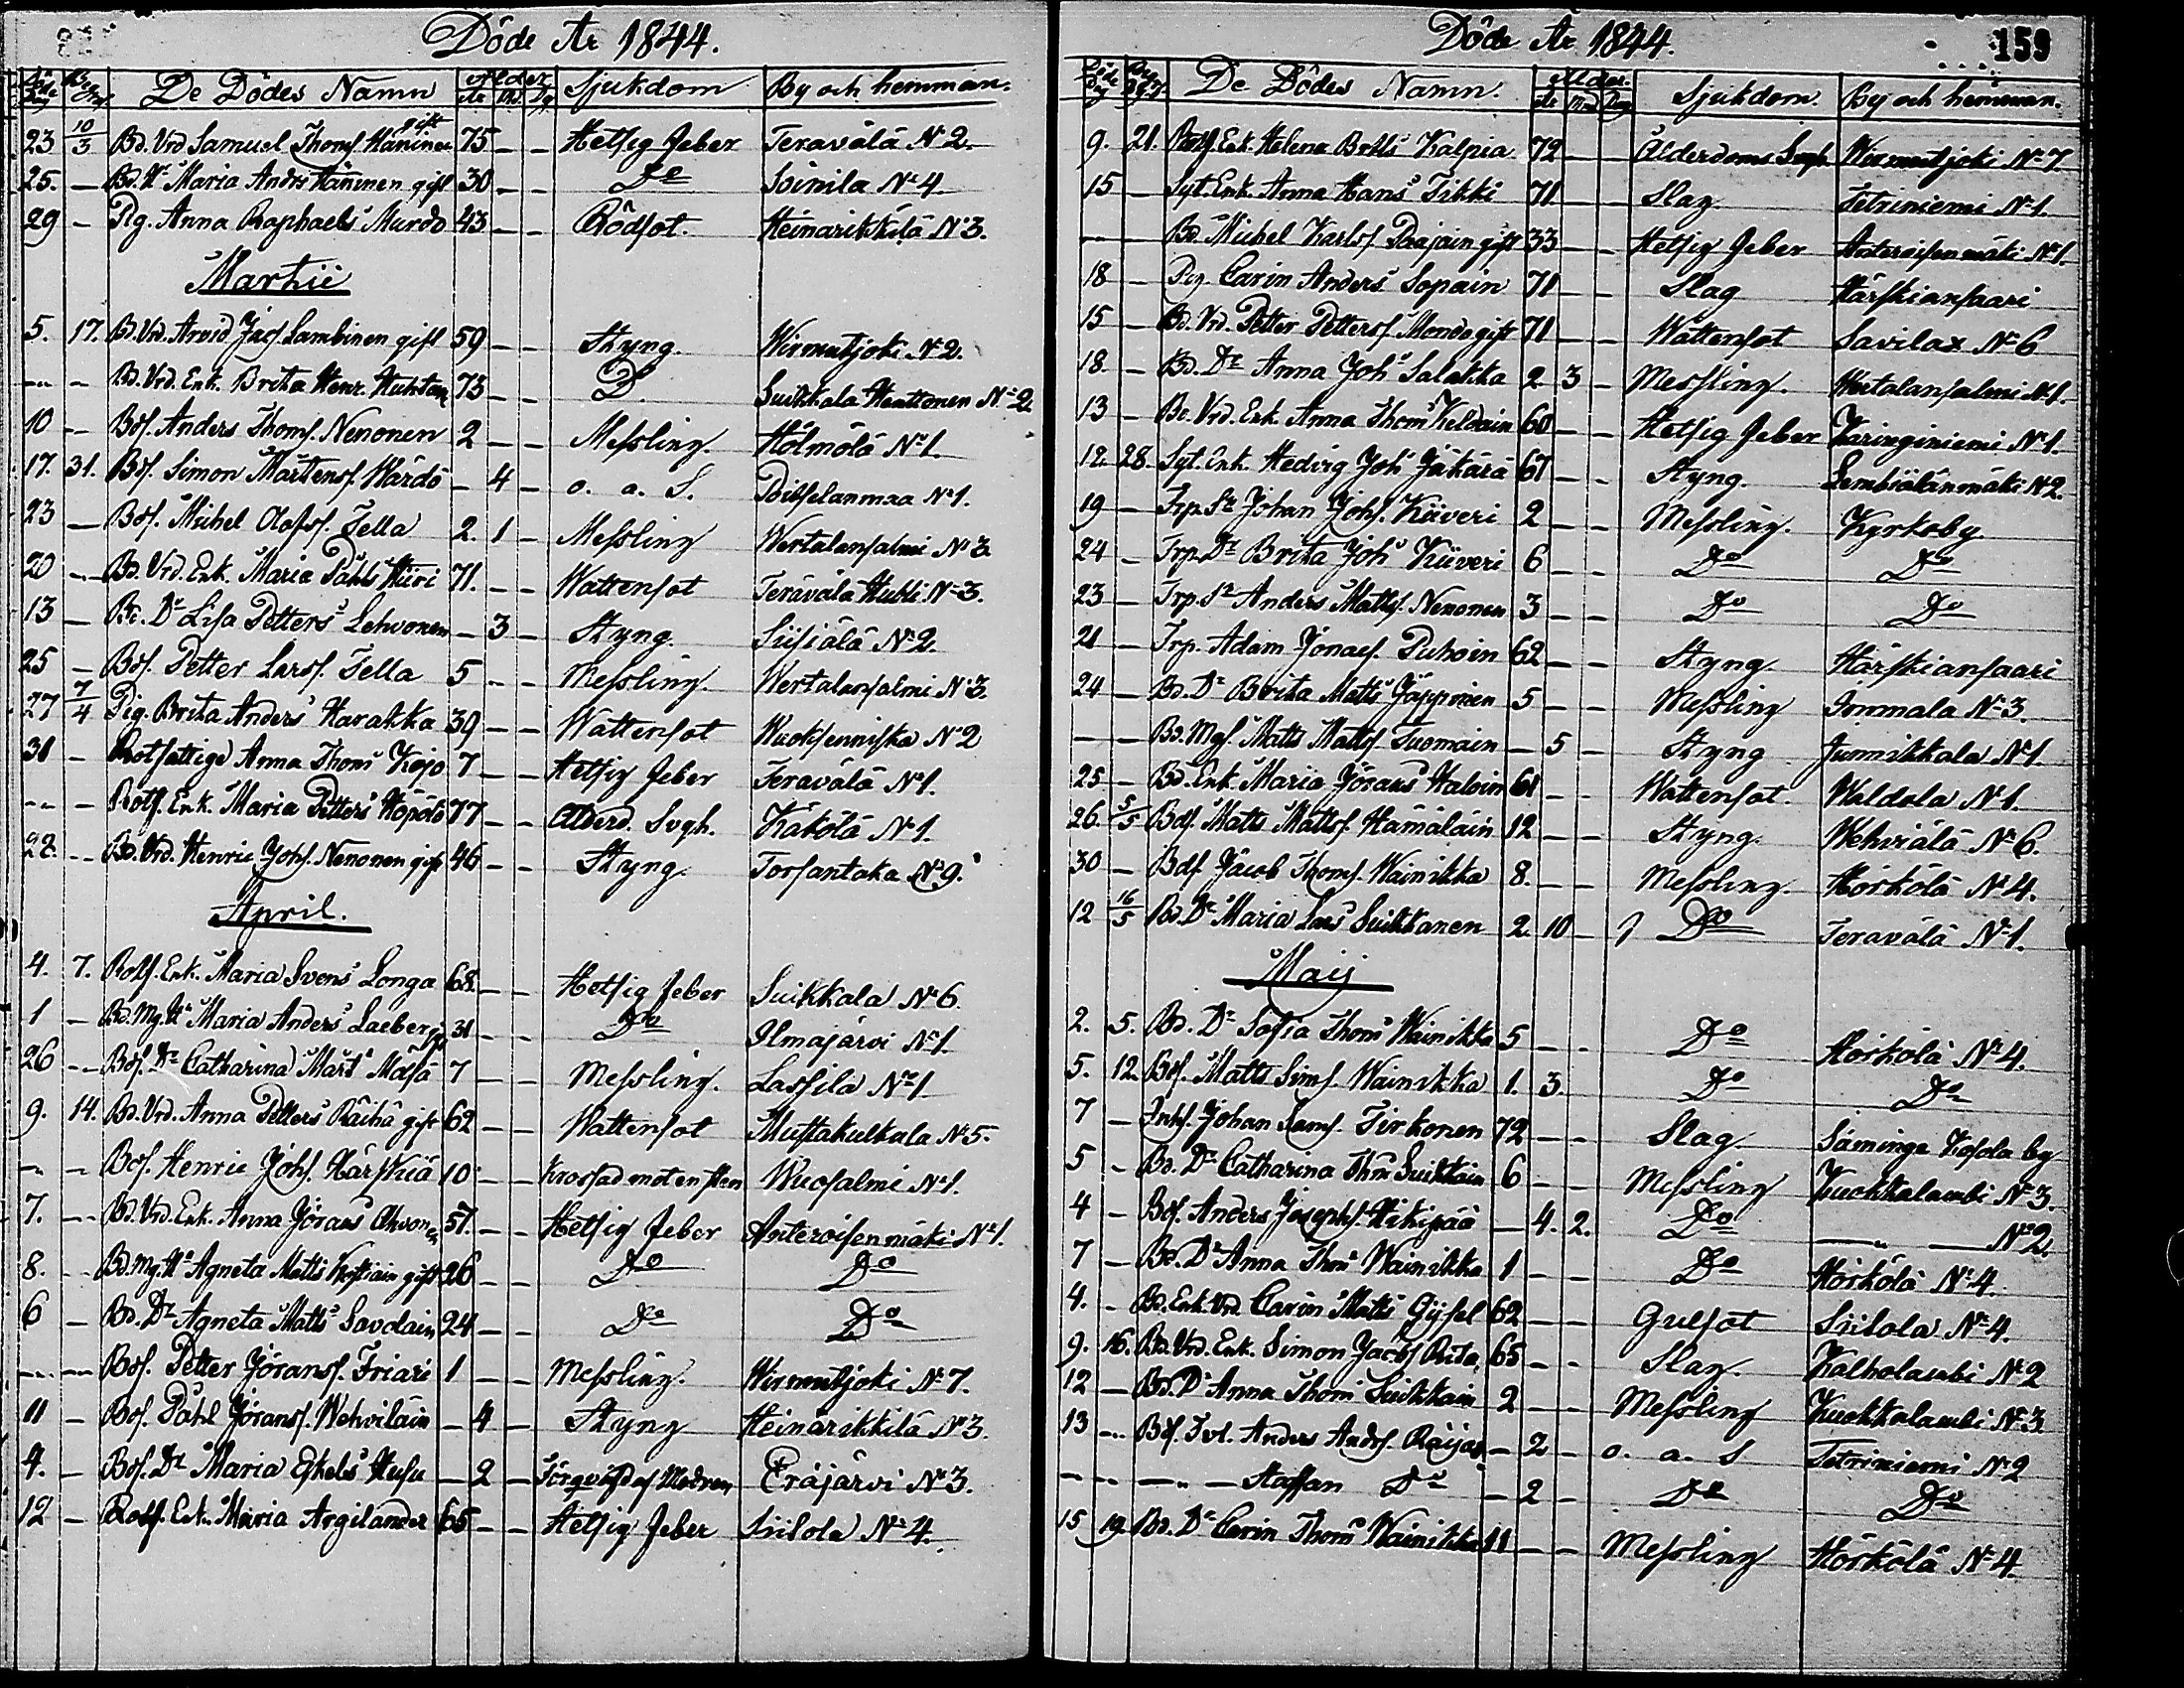 Döde År 1844.
Döde Dag Begr. Dag De Dödes Namn Ålder År Md. Dg. Sjukdom By och hemman.
23 10/3 Bd. Vrd Samuel Thomss. Häninen gift 75 - - Hetsig feber Terävälä No 2.
25. - Bd. H. Maria Anders Häninen gift 30 - - Do Soinila No 4.
29 - Pig. Anna Raphaels Murdo 43 - - Rödsot. Heinarikkilä No 3.
Martii
5. 17. Bd. Vrd. Arvid Jacs. Lambinen gift 59 - - Styng. Wirmutjoki No 2.
- - Bd. Vrd. Enk. Brita Henr. Huhtan 73 - - Do Suikkala Hauttonen No 2.
10 - Bds. Anders Thoms. Nenonen 2 - - Messling. Hölmölä No 1.
17. 31. Bds. Simon Mårtenss. Wårdo - 4 - o. a. S. Poitselanmaa No 1.
23 - Bds. Michel Olofss. Tella 2. 1 - Messling Wertalansalmi No 3.
20 - Bd. Vrd. Enk. Maria Påhls Hiiri 71. - - Wattensot Terävälä Hubli No 3.
13 - Bd. Dr Lisa Petters Lehvonen - 3 - Styng. Siisiälä No 2.
25 - Bds. Petter Larss. Tella 5 - - Messling. Wertalansalmi No 3.
27 7/4 Pig. Brita Anders Harakka 39 - - Wattensot Wuoksenniska No 2
31 - Rotfattige Anna Thoms Kojo 7 - - Hetsig feber Terävälä No 1.
- - Rotf. Enk. Maria Petters Höpötö 77 - - Ålderd. Svgh. Käkölä No 1.
28. - Bd. Vrd. Henric Johs. Nenonen gift 46 - - Styng. Torsantaka No 9.
April.
4. 7. Rotf. Enk. Maria Svens Longa 68. - - Hetsig feber Suikkala No 6.
1 - Bd. Mg. H. Maria Anders Laeber gift 31 - - Do Ilmajärvi No 1.
26 - Bds. Dr Catharina Mårts Mälsä 7 - - Messling. Lassila No 1.
9. 14. Bd. Vrd. Anna Petters Räihä gift 62 - - Wattensot Mustakulkala No 5.
- - Bds. Henric Johs. Härskiä 10 - - Krossad mot en sten Wuosalmi No 1.
7. - Bd. Vrd. Enk. Anna Jörans Ahvonen 57. - - Hetsig feber Anteroisenmäki No 1.
8. - Bd. Mg. H. Agneta Matts gift 26 - - Do Do
6 - Bd. Dr Agneta Matts Savolain 24 - - Do Do
- - Bds. Petter Jöranss. Friari 1 - - Messling. Wirmutjoki No 7.
11 - Bds. Påhl Jöranss. Wehviläin - 4 - Styng Heinärikkilä No 3.
4. - Bds. Dr Maria Eskels Husu - 2 - af Modren Eräjärvi No 3.
12 - Rotf. Enk. Maria Argilander 65 - - Hetsig feber Siilola No 4.
Döde År 1844. 159
Döde Dag Begr. Dag De Dödes Namn. Ålder År Md Dag Sjukdom. By och hemman.
9. 21. Rotf. Enk. Helena Bertils Kalpia 72 - - Ålderdoms Svgh. Wirmutjoki No 7.
15 - Syt. Enk. Anna Hans Tikki 71 - - Slag Tetriniemi No 1.
- - Bd. Michel Karlss. Paajain gift 33 - - Hetsig feber Anteroisenmäki No 1.
18 - Pig. Carin Anders Sopain 71 - - Slag Härskiansaari
15 - Bd. Vrd. Petter Petterss. Mondo gift 71 - - Wattensot Savilax No 6
18. - Bd. Dr Anna Joh Salakka 2 3 - Messling. Wertalansalmi No 1.
13 - Bd. Vrd. Enk. Anna Thoms Keldain 60 - - Hetsig feber Karinginiemi No 1.
12. 28. Syt. Enk. Hedvig Joh Jäkärä 67 - - Styng. Lembiälänmäki No 2.
19 - Trp. Sr Johan Johs. Kiiveri 2 - - Messling. Kyrkoby
24 - Trp. Dr Brita Johs Kiiveri 6 - - Do Do
23 - Trp. Sr Anders Mattss. Nenonen 3 - - Do Do
21 - Trp. Adam Jonaes. Puhoin 62 - - Styng. Härskiansaari
24 - Bd. Dr Brita Matts Jäppinen 5 - - Messling Immala No 3.
- - Bd. Mgs. Matts Mattss. Tuomain - 5 - Styng Junnikkala No 1
25 - Bd. Enk. Maria Jörans Haloin 61 - - Wattensot. Waldola No 1.
26. 5/5 Bds. Matts Mattss. Hämäläin 12 - - Styng. Wehviälä No 6.
30 - Bds. Jacob Thoms. Wainikka 8. - - Messling. Hörkölä No 4.
12 16/5 Bd. Dr Maria Lars Suikkanen 2. 10 - Do Terävälä No 1.
Maij
2. 5. Bd. Dr Sofia Thoms Wainikka 5 - - Do Hörkölä No 4.
5. 12. Bds. Matts Sims. Wainikka 1. 3. Do Do
7 - Inhs. Johan Sams. Tirkonen 72 - - Slag. Säminge Kosola by
5 - Bd. Dr Catharina Thms Suikkain 6 - - Messling Kuokkalambi No 3.
4 - Bds. Anders Josephs. Hikipää - 4. 2. Do - " - No 2.
7 - Bd. Dr Anna Thoms Wainikka 1 - - Do Hörkölä No 4.
4. - Bd. Enk. Vrd. Carin Matts Gijsel 62 - - Gulsot Siilola No 4.
9. 16. Bd. Vrd. Enk. Simon Jacobs Rita 65 - - Slag. Kalholambi No 2
12 - Bd. Dr Anna Thoms Suikkain 2 - - Messling Kuokkalambi No 3
13 - Bds. Tvl. Anders Anders. Räijas - 2 - o. a. S Tetriniemi No 2
- - - " - Staffan Do - 2 - Do Do
15 19. Bd. Dr Carin Thoms Wainikka 11 - - Messling Hörkölä No 4.